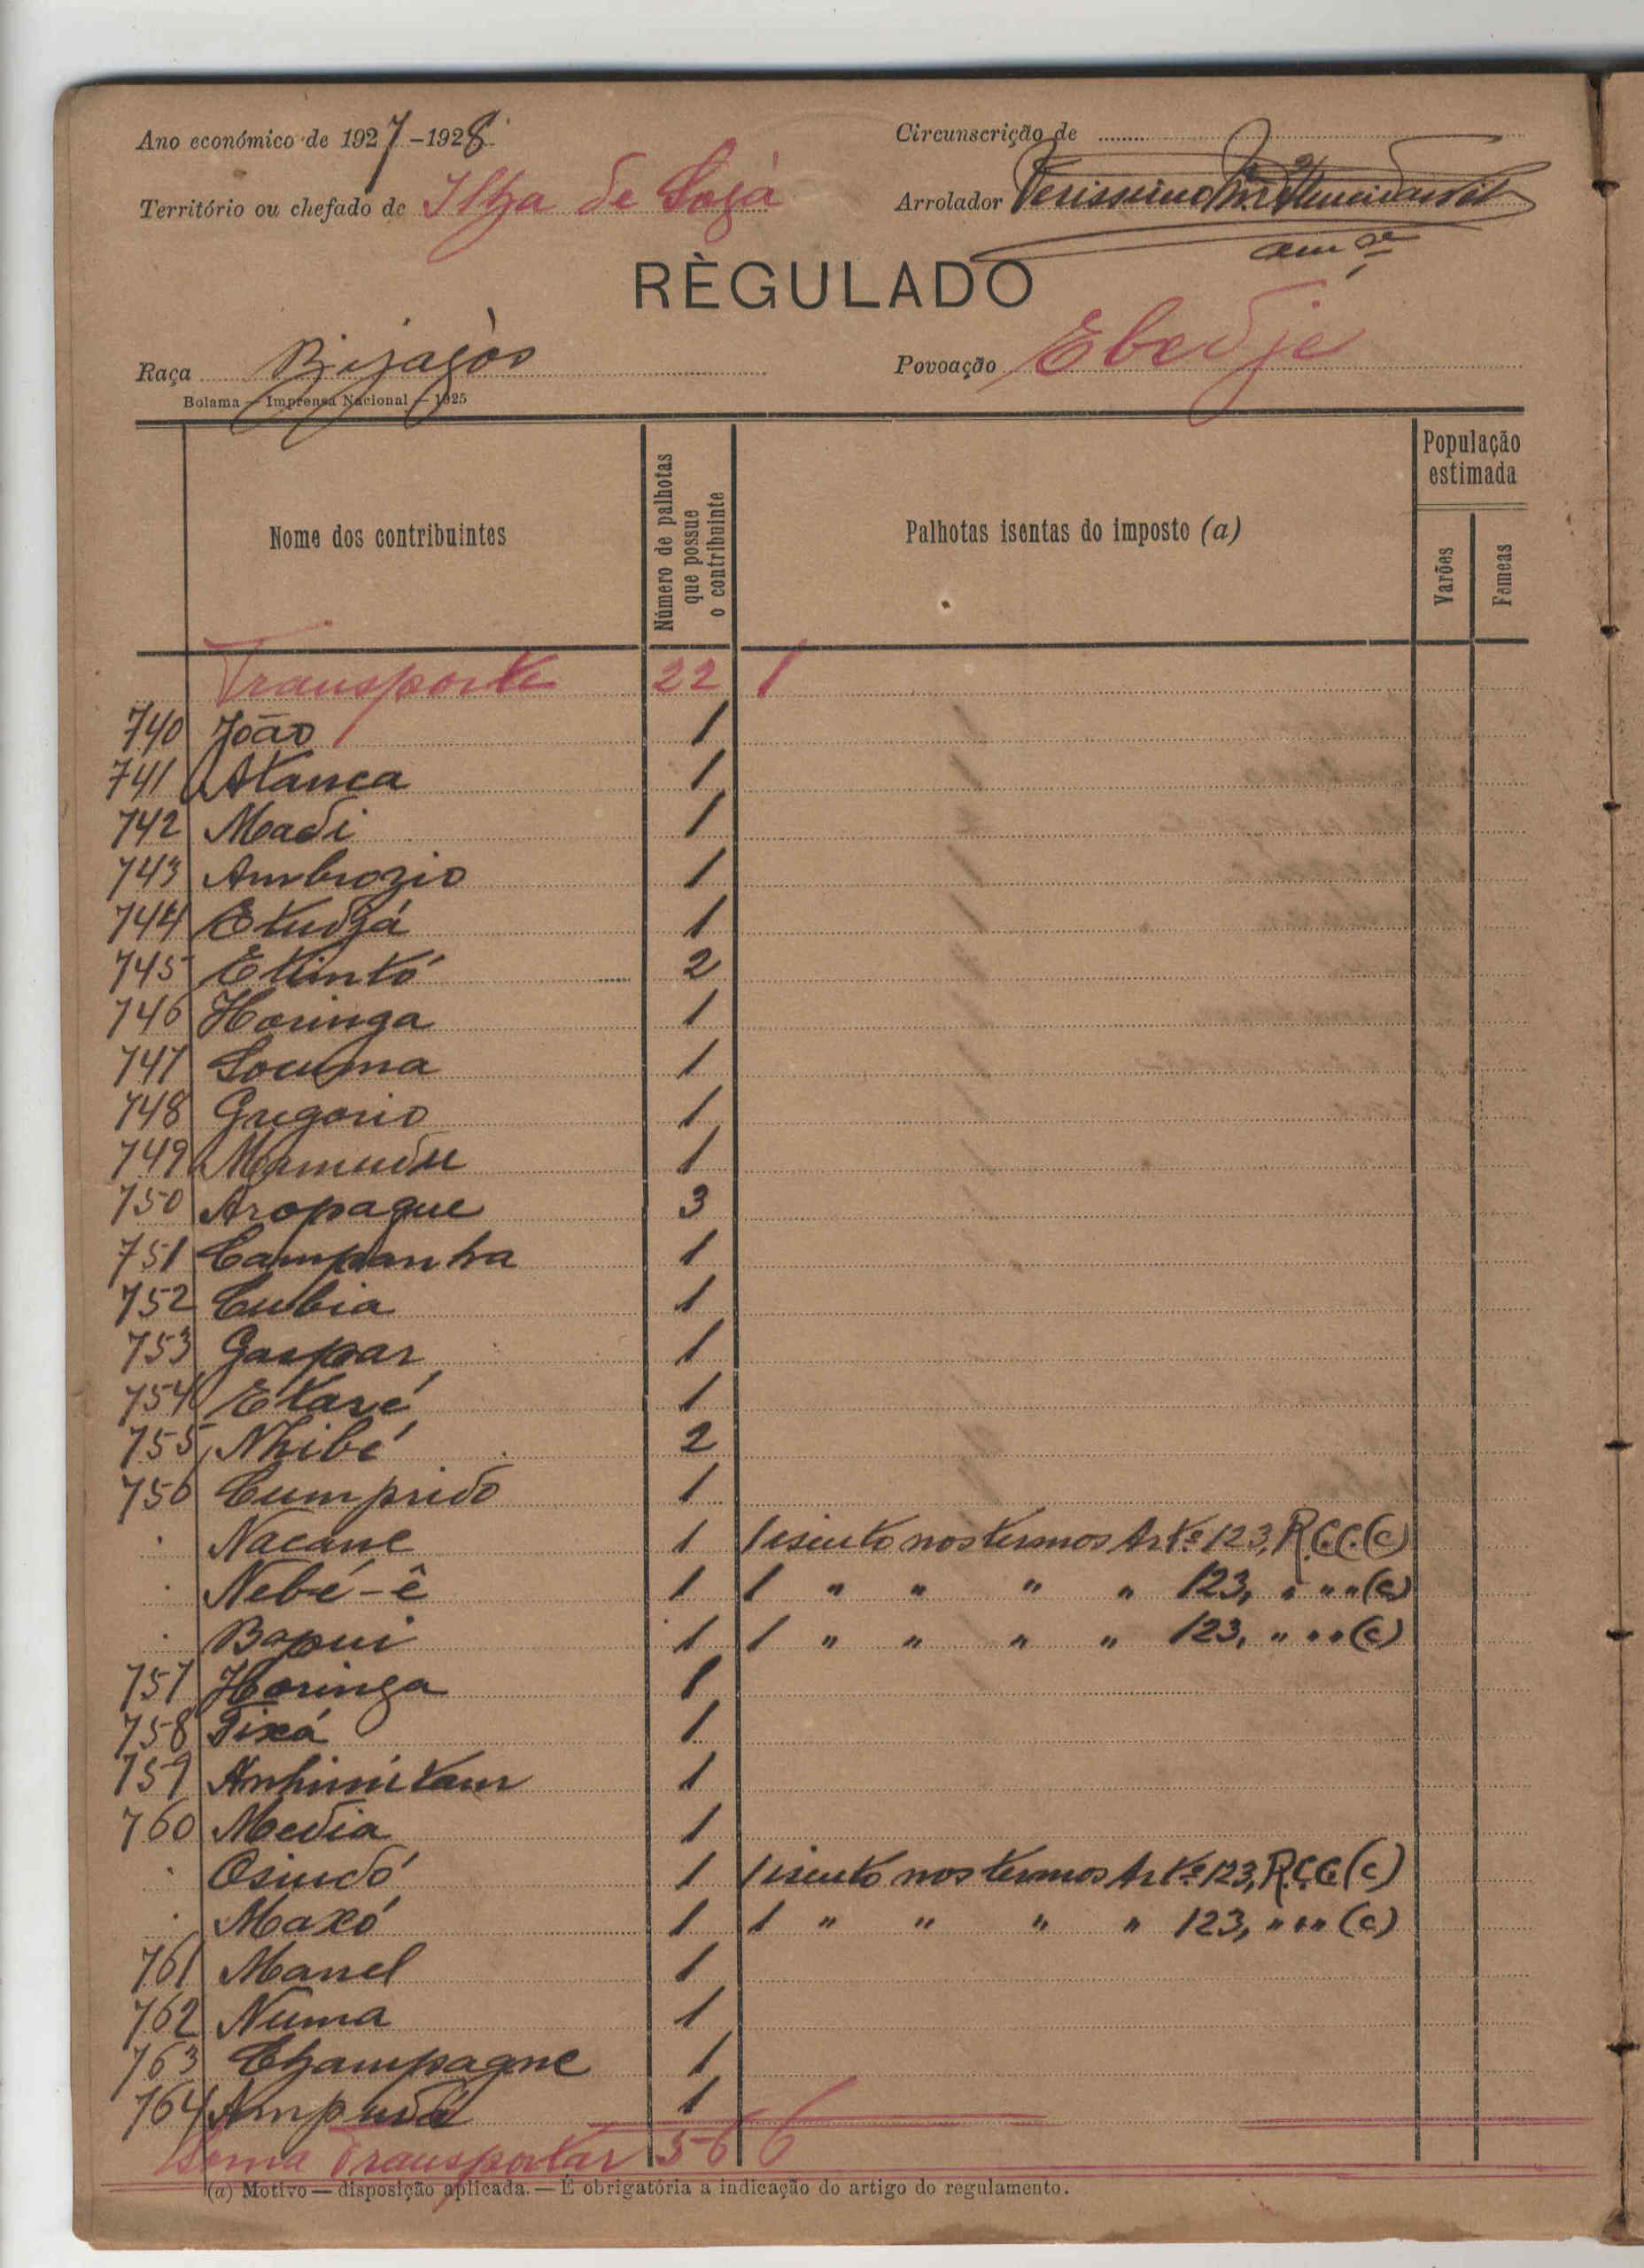 Ano económico de 1927-1928
Circunscrição de
Território ou chefado de Ilha de Sogá
Arrolador Verissimo
RÈGULADO
Raça Bijagós
Povoação Ebedjé
Bolama — Imprensa Nacional — 1925
Nome dos contribuintes
Número de palhotas que possue o contribuinte
Palhotas isentas do imposto (a)
População estimada
Varões
Femeas
Transporte 22 1
740 João 1
741 Atanca 1
742 Madi 1
743 Ambrozio 1
744 Etudjá 1
745 Etintó 2
746 Horinga 1
747 Locuma 1
748 Gregorio 1
749 Mamudu 1
750 Aropague 3
751 Campanha 1
752 Cubia 1
753 Gaspar 1
754 Etaré 1
755 Nhibé 2
756 Cumprido 1
Nacane 1 1 isento nos termos Artº 123, R.C.C. (c)
Nebé-ê 1 1 " " " " 123, " " " (c)
Bapui 1 1 " " " " 123, " " " (c)
757 Horinga 1
758 Tixá 1
759 1
760 Media 1
Osindó 1 1 isento nos termos Artº 123, R.C.C. (c)
Maxó 1 1 " " " " 123, " " " (c)
761 Manel 1
762 Numa 1
763 Champagne 1
764 Ampudá 1
Soma Transportar 56 6
(a) Motivo — disposição aplicada. — É obrigatória a indicação do artigo do regulamento.